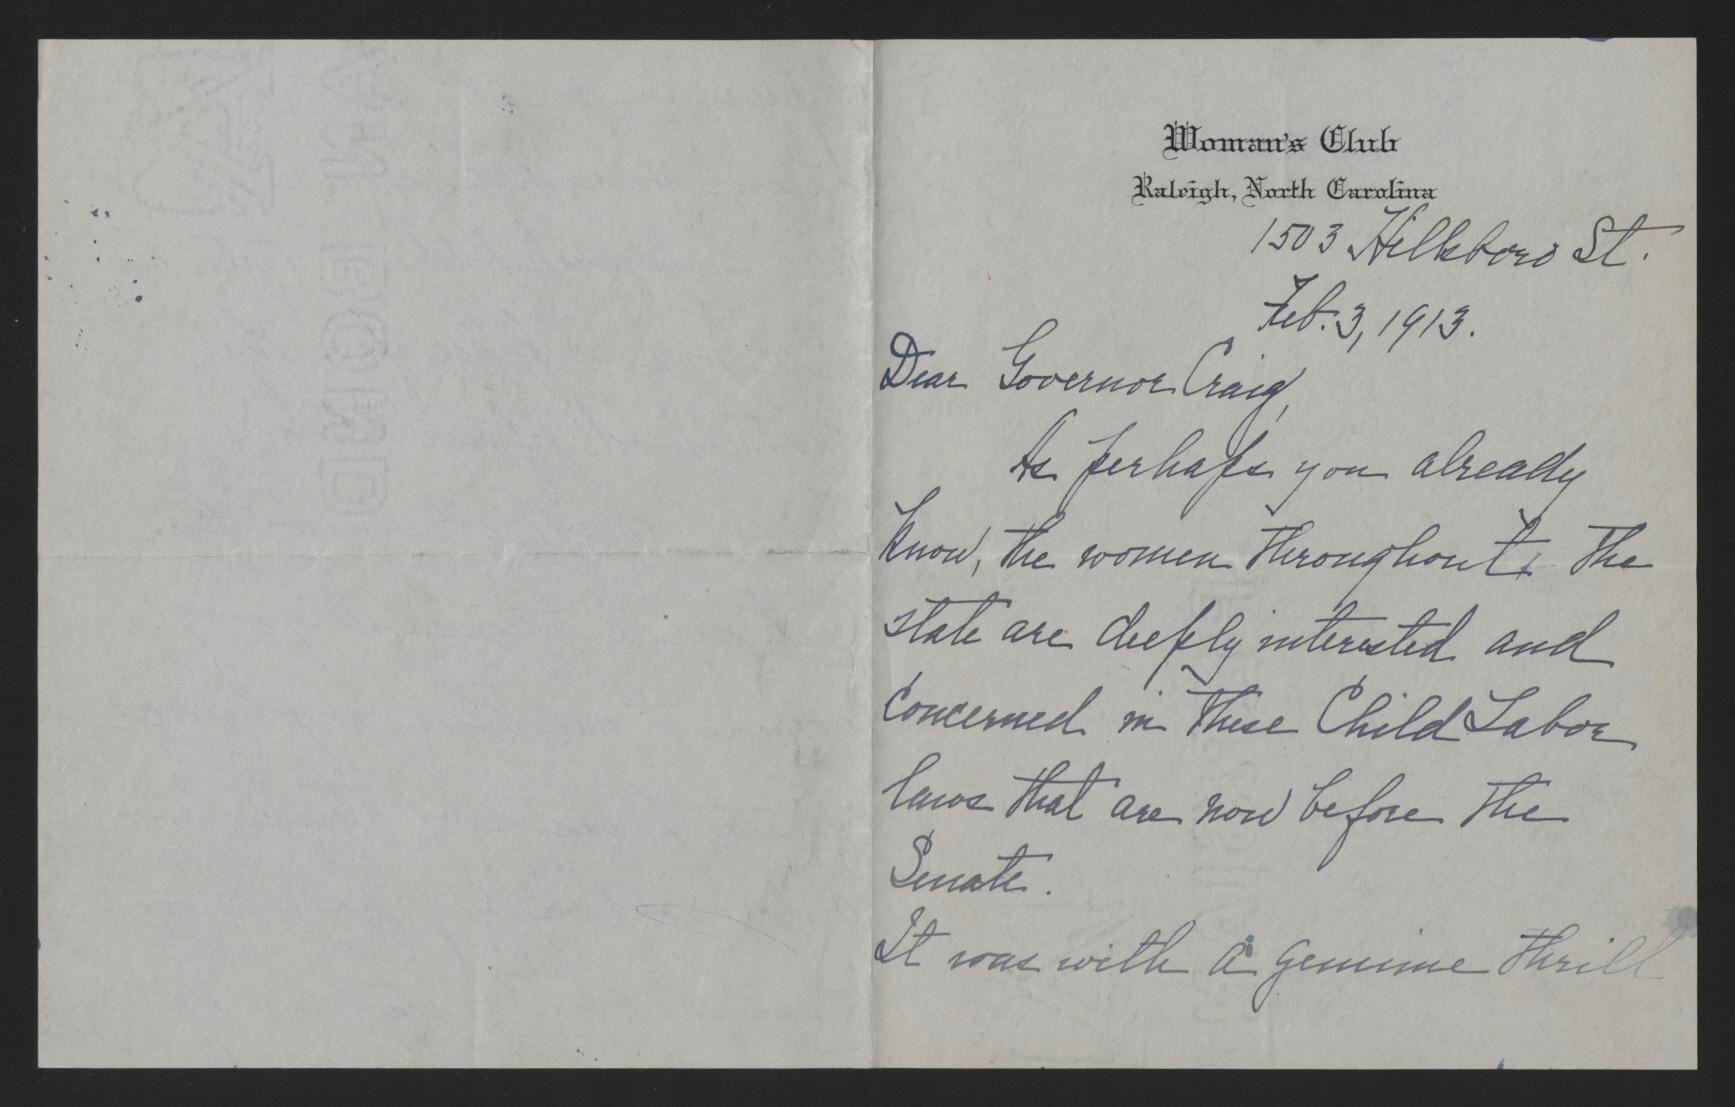 Woman's Club
Raleigh, North Carolina
1503 Hillsboro St.
Feb. 3, 1913.
Dear Governor Craig,
As perhaps you already
know, the women throughout the
state are deeply interested and
concerned in these Child Labor
laws that are now before the
Senate.
It was with a genuine thrill